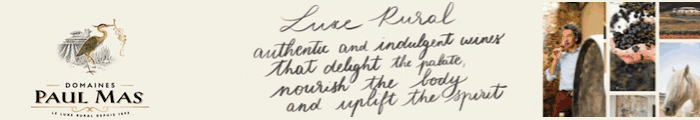 DOMAINES
PAUL MAS
LE LUXE RURAL DEPUIS 1892
Luxe Rural
authentic and indulgent wines
that delight the palate,
nourish the body
and uplift the spirit